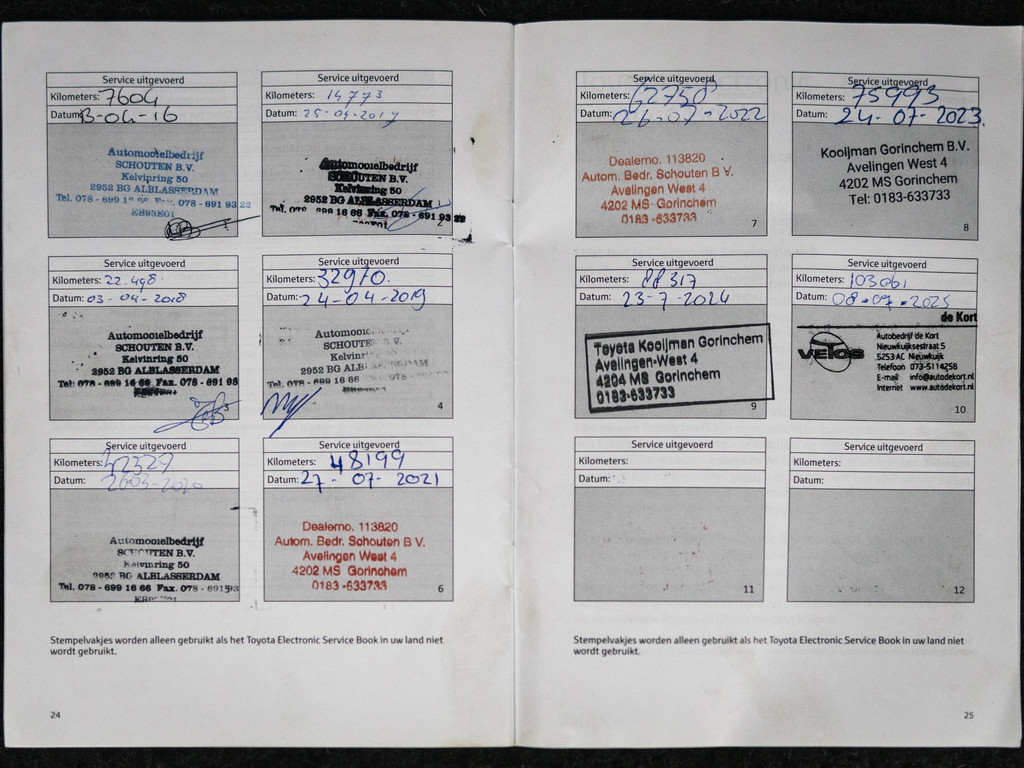 Service uitgevoerd
Kilometers: 7604
Datum: 13-04-16
Automobielbedrijf
SCHOUTEN B.V.
Kelvinring 50
2952 BG ALBLASSERDAM
Tel. 078 - 699 16 66 Fax. 078 - 691 93 22
Service uitgevoerd
Kilometers: 14773
Datum: 25-04-2017
Automobielbedrijf
SCHOUTEN B.V.
Kelvinring 50
2952 BG ALBLASSERDAM
Tel. 078 - 699 16 66 Fax. 078 - 691 93 22
2
Service uitgevoerd
Kilometers: 22.498
Datum: 03-04-2018
Automobielbedrijf
SCHOUTEN B.V.
Kelvinring 50
2952 BG ALBLASSERDAM
Tel. 078 - 699 16 66 Fax. 078 - 691 93
Service uitgevoerd
Kilometers: 32970.
Datum: 24-04-2019
SCHOUTE
2952 BG ALB
Tel. 078 - 699 16 66
4
Service uitgevoerd
Kilometers: 42329
Datum: 2603-2020
Automobielbedrijf
SCHOUTEN B.V.
Kelvinring 50
2952 BG ALBLASSERDAM
Tel. 078 - 699 16 66 Fax. 078 - 691 93
Service uitgevoerd
Kilometers: 48199
Datum: 27-07-2021
Dealerno. 113820
Autom. Bedr. Schouten B V.
Avelingen West 4
4202 MS Gorinchem
0183-633733
6
Stempelvakjes worden alleen gebruikt als het Toyota Electronic Service Book in uw land niet
wordt gebruikt.
24
Service uitgevoerd
Kilometers: 62758
Datum: 26-07-2022
Dealerno. 113820
Autom. Bedr. Schouten B V
Avelingen West 4
4202 MS Gorinchem
0183-633733
7
Service uitgevoerd
Kilometers: 75993
Datum: 24-07-2023.
Kooijman Gorinchem B.V.
Avelingen West 4
4202 MS Gorinchem
Tel: 0183-633733
8
Service uitgevoerd
Kilometers: 88317
Datum: 23-7-2024
Toyota Kooijman Gorinchem
Avelingen-West 4
4204 MS Gorinchem
0183-633733
9
Service uitgevoerd
Kilometers: 103061
Datum: 08-07-2025
de Kort
VEIOS
Autobedrijf de Kort
Nieuwkuijksestraat 5
5253 AC Nieuwkuijk
Telefoon 073-5114258
E-mail info@autodekort.nl
Internet www.autodekort.nl
10
Service uitgevoerd
Kilometers:
Datum:
11
Service uitgevoerd
Kilometers:
Datum:
12
Stempelvakjes worden alleen gebruikt als het Toyota Electronic Service Book in uw land niet
wordt gebruikt.
25